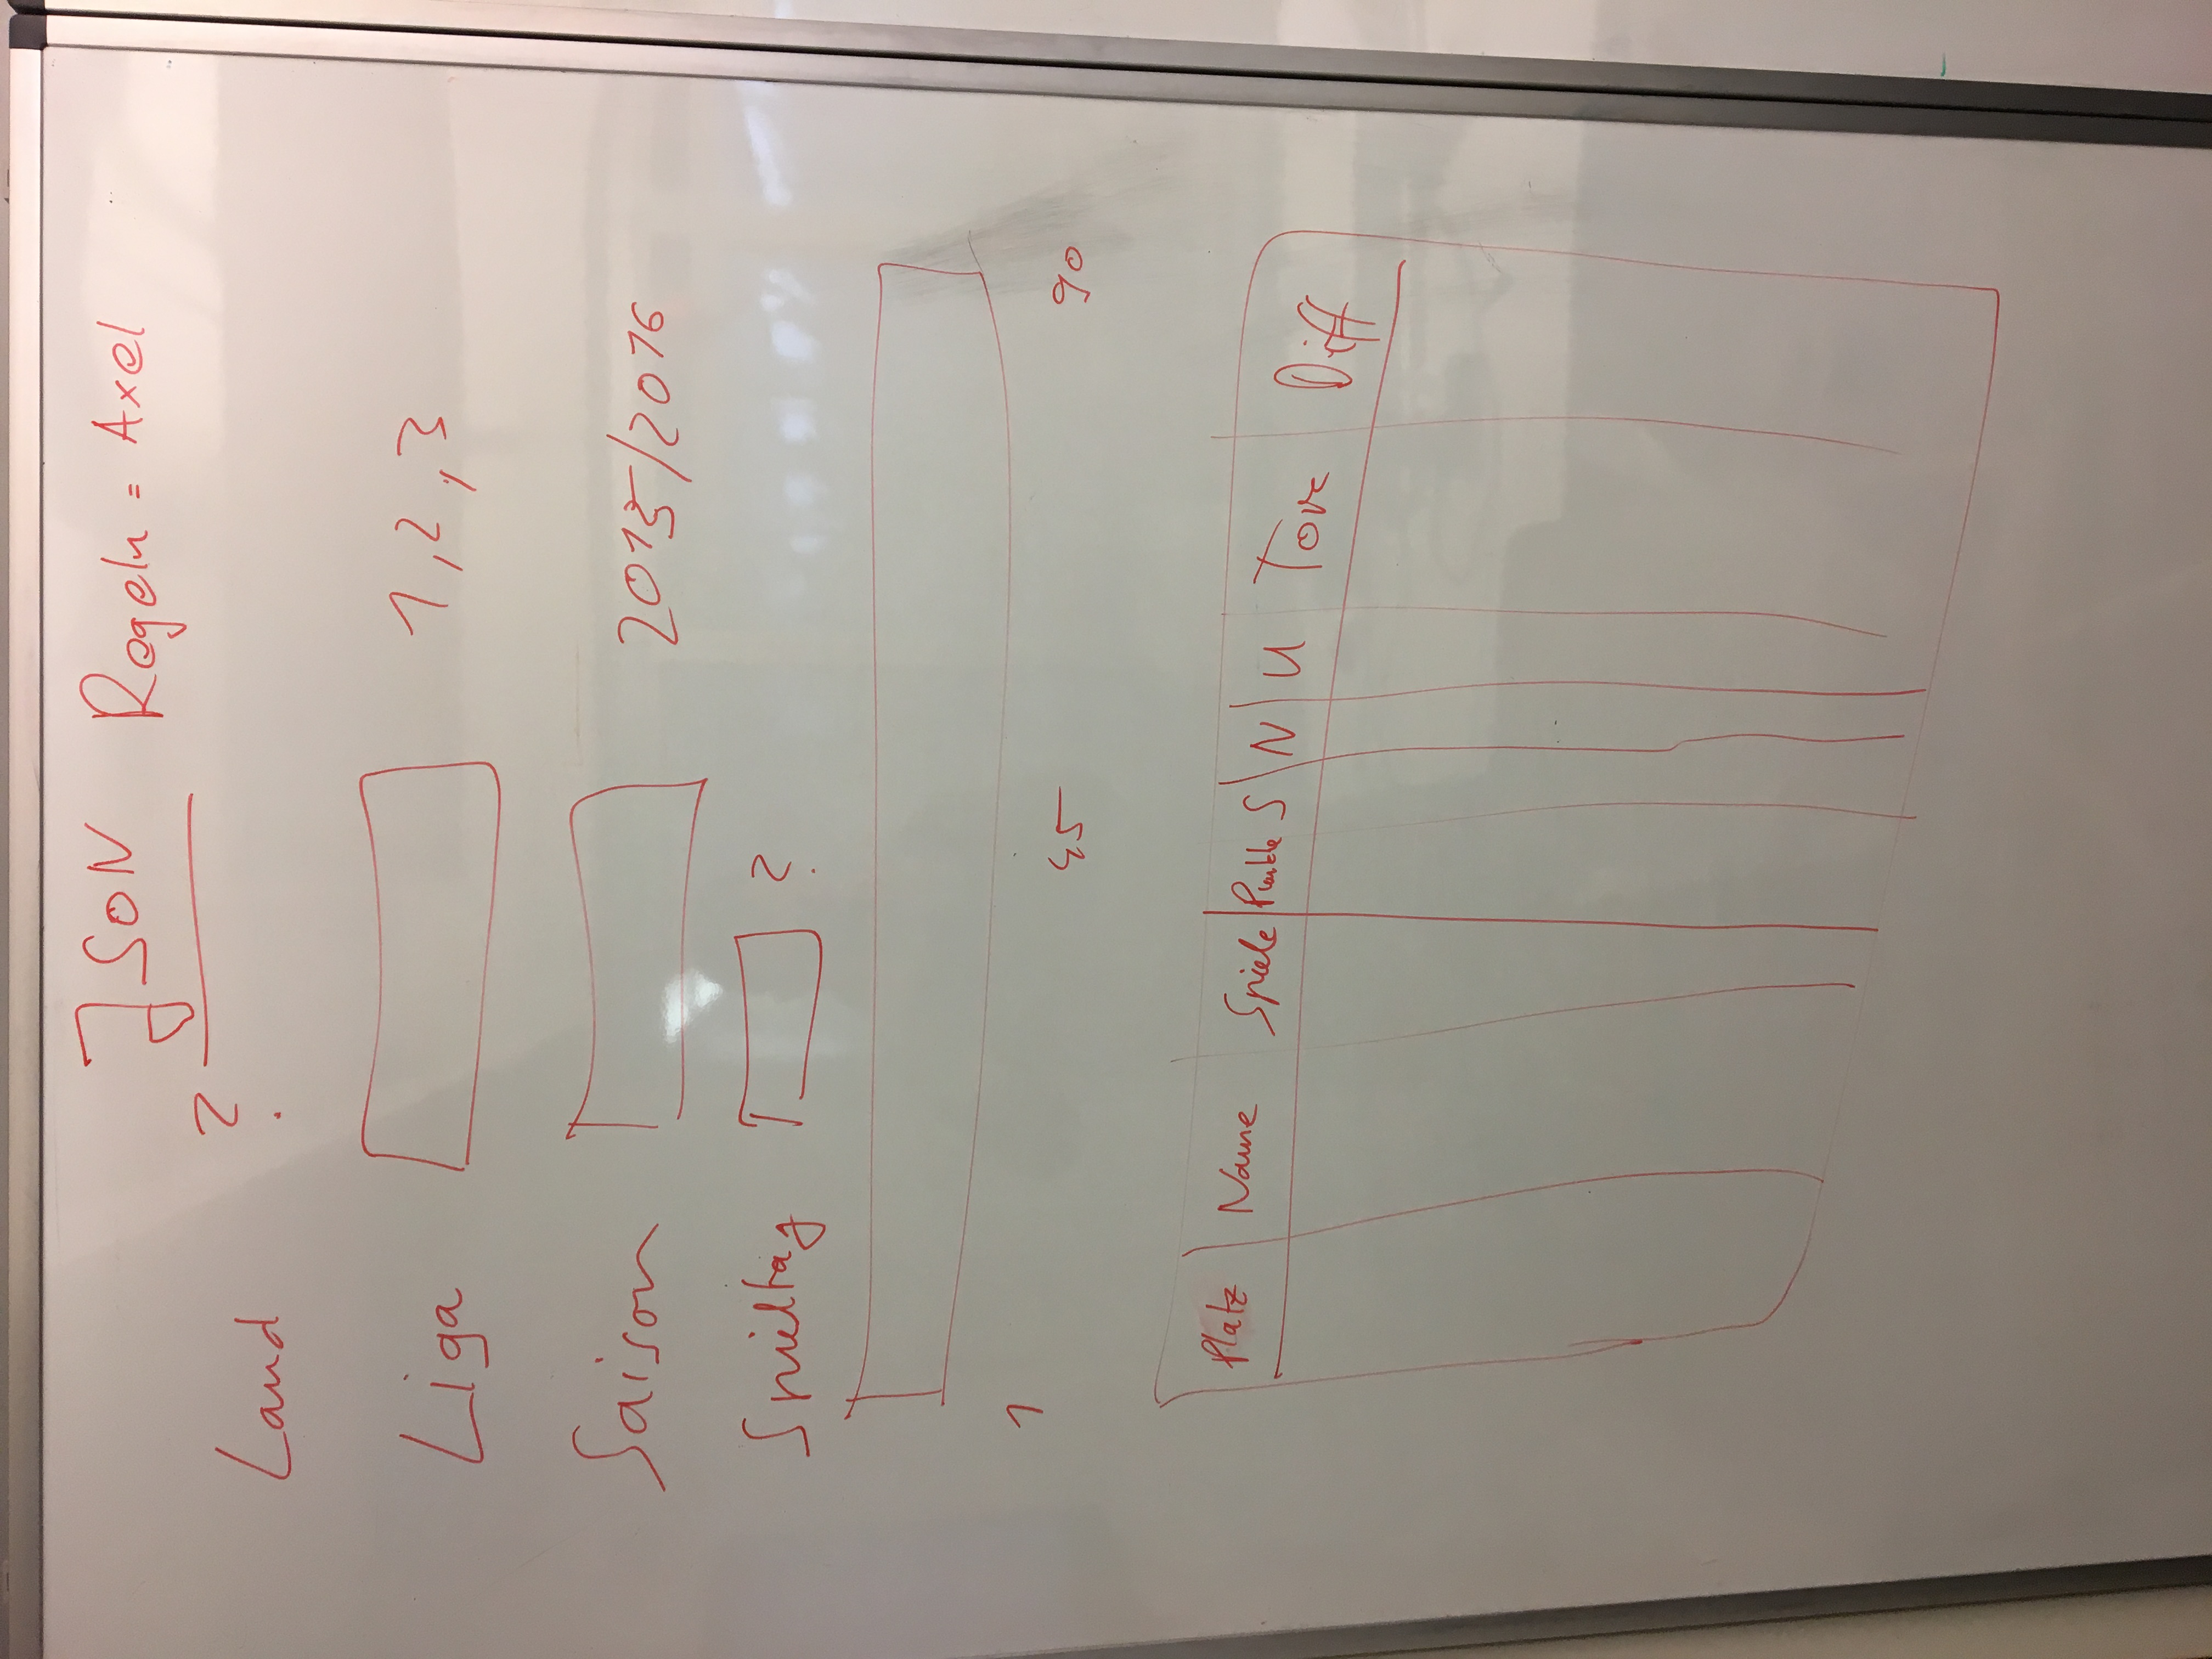 JSON Regeln = Axel
Land ?
Liga 1, 2, 3
Saison 2015/2016
Spieltag ?
1 45 90
Platz Name Spiele Punkte S N U Tore Diff